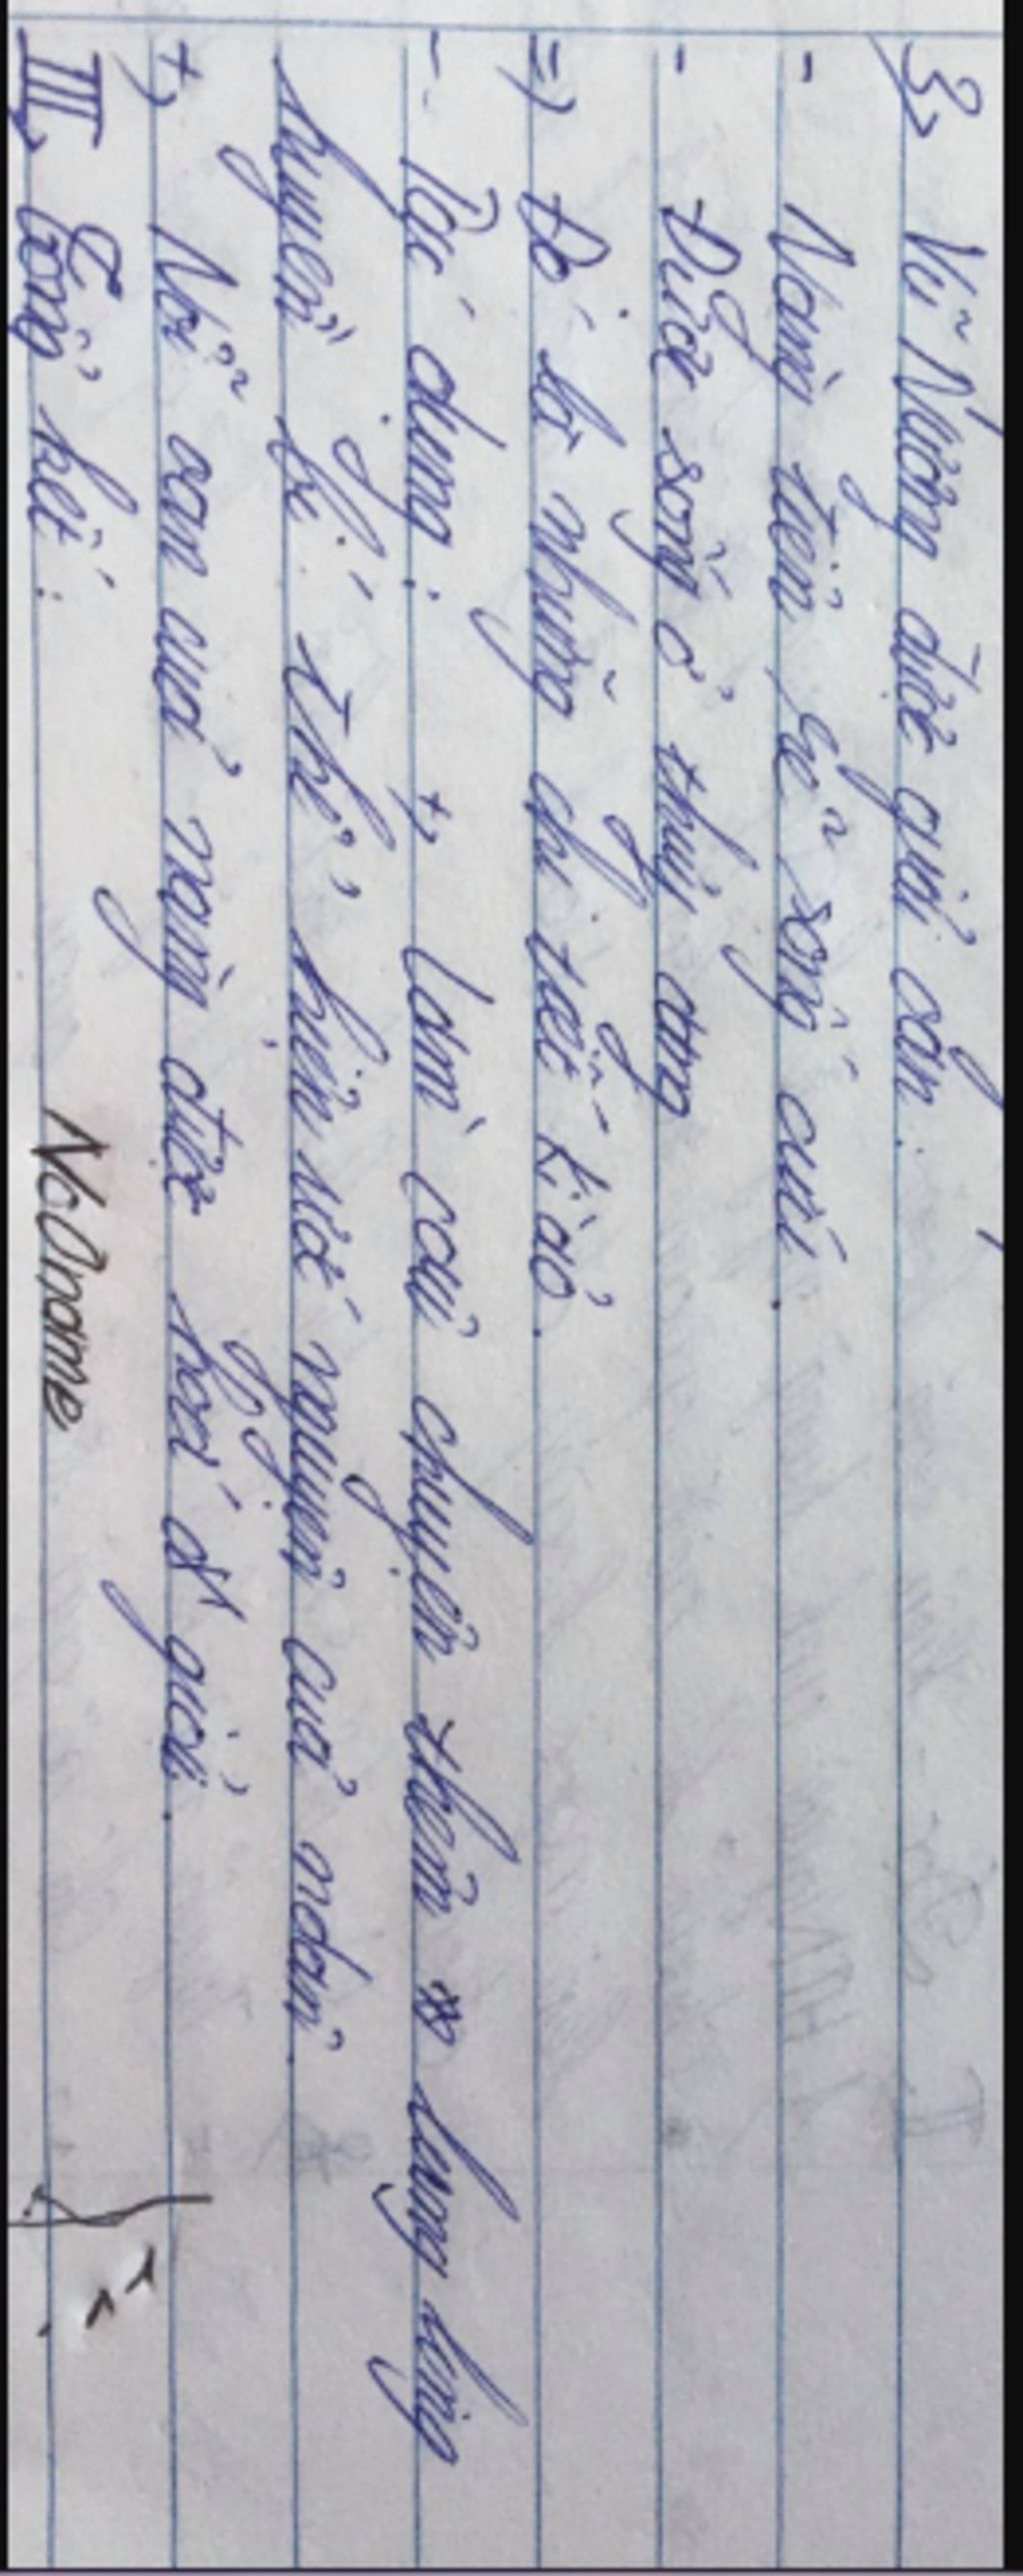 3, Vũ Nương được giải oan.
- Nàng tiên rẽ sóng cứu.
- Được sống ở thủy cung
=> Đó là những chi tiết kì ảo.
- Tác dụng: +, Làm câu chuyện thêm lung linh
huyền bí. Thể hiện ước nguyện của nd
+, Nỗi oan của nàng được hoá giải.
III, Tổng kết:
NoOname